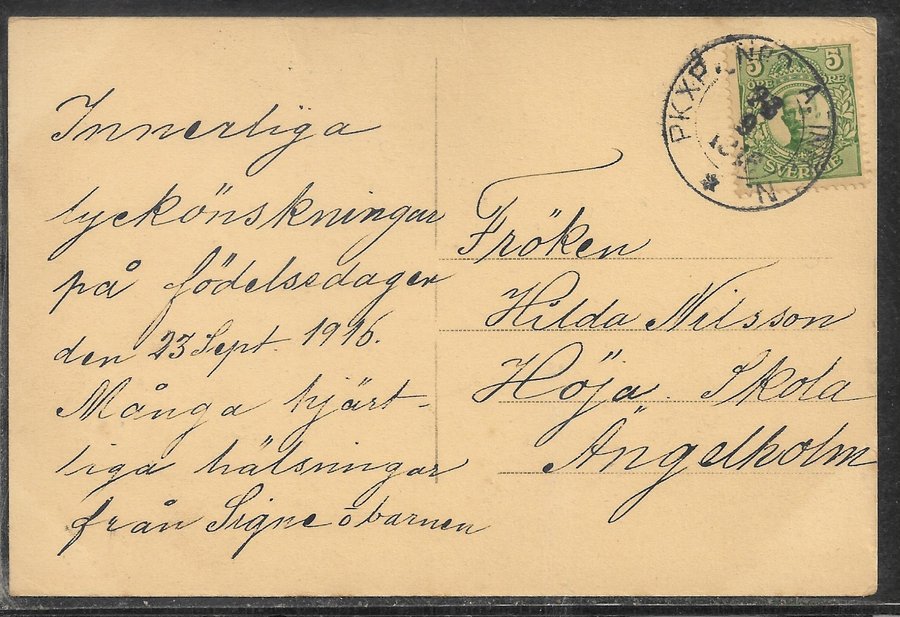 Innerliga
lyckönskningar
på födelsedagen
den 23 Sept. 1916.
Många hjärt-
liga hälsningar
från Signe o barnen
5 5
ÖRE ÖRE
SVERIGE
PKXP
Fröken
Hilda Nilsson
Höja Skola
Ängelholm